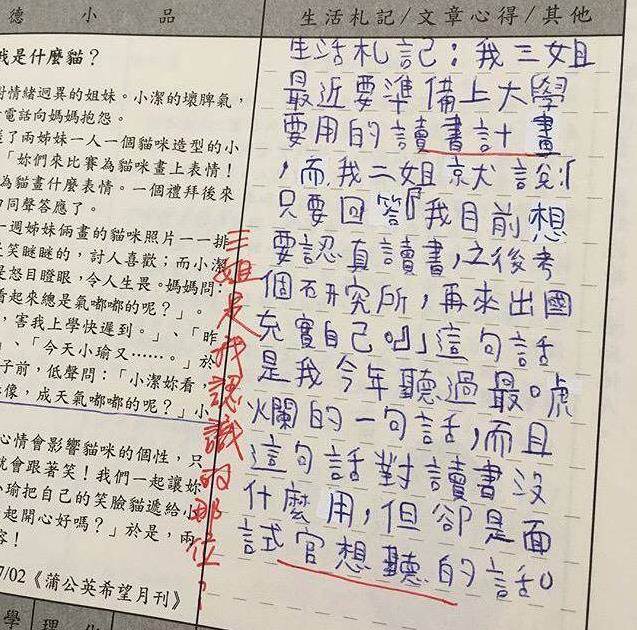 德 小 品
我是什麼貓？
對情緒迥異的姐妹。小潔的壞脾氣，
電話向媽媽抱怨。
了兩姊妹一人一個貓咪造型的小
「妳們來比賽為貓咪畫上表情！
為貓畫什麼表情。一個禮拜後來
同聲答應了。
一週姊妹倆畫的貓咪照片一一排
笑瞇瞇的，討人喜歡；而小潔
是怒目瞪眼，令人生畏。媽媽問：
看起來總是氣嘟嘟的呢？」。
，害我上學快遲到。」、「昨
」、「今天小瑜又……。」於
子前，低聲問：「小潔妳看，
像，成天氣嘟嘟的呢？」小
心情會影響貓咪的個性，只
就會跟著笑！我們一起讓妳
小瑜把自己的笑臉貓遞給小
起開心好嗎？」於是，兩
容！
7/02《蒲公英希望月刊》
三姐是我認識的那位？
生活札記/文章心得/其他
生活札記：我三姐
最近要準備上大學
要用的讀書計畫
，而我二姐就說
只要回答『我目前想
要認真讀書，之後考
個研究所，再來出國
充實自己吧』這句話
是我今年聽過最唬
爛的一句話，而且
這句話對讀書沒
什麼用，但卻是面
試官想聽的話。
學 理 化